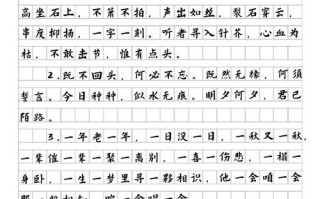 高坐石上，不箫不拍，声出如丝，裂石穿云，
串度抑扬，一字一刻。听者寻入针芥，心血为
枯，不敢击节，惟有点头。
2.既不回头，何必不忘。既然无缘，何须
誓言。今日种种，似水无痕。明夕何夕，君已
陌路。
3.一年老一年，一日没一日，一秋又一秋，
一辈催一辈一聚一离别，一喜一伤悲，一榻一
身卧，一生一梦里寻一夥相识，他一会咱一会